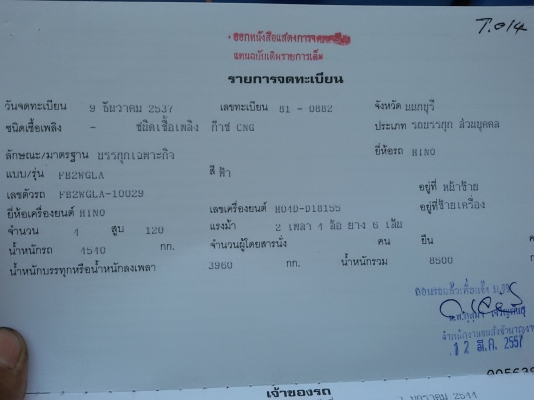 T.014
ออกหนังสือแสดงการจดทะเบียน
แทนฉบับเดิมรายการเต็ม
รายการจดทะเบียน
วันจดทะเบียน 9 ธันวาคม 2537 เลขทะเบียน 81 - 0882 จังหวัด นนทบุรี
ชนิดเชื้อเพลิง - ชนิดเชื้อเพลิง ก๊าซ CNG ประเภท รถบรรทุก ส่วนบุคคล
ลักษณะ/มาตรฐาน บรรทุกเฉพาะกิจ ยี่ห้อรถ HINO
แบบ/รุ่น FB2WGLA สี ฟ้า
เลขตัวรถ FB2WGLA-10029 อยู่ที่ หน้าซ้าย
ยี่ห้อเครื่องยนต์ HINO เลขเครื่องยนต์ H04D-D18155 อยู่ที่ ซ้ายเครื่อง
จำนวน 4 สูบ 120 แรงม้า 2 เพลา 4 ล้อ ยาง 6 เส้น
น้ำหนักรถ 4540 กก. จำนวนผู้โดยสารนั่ง คน ยืน
น้ำหนักบรรทุกหรือน้ำหนักลงเพลา 3960 กก. น้ำหนักรวม 8500
12 มี.ค. 2557
เจ้าของรถ
มกราคม 2544